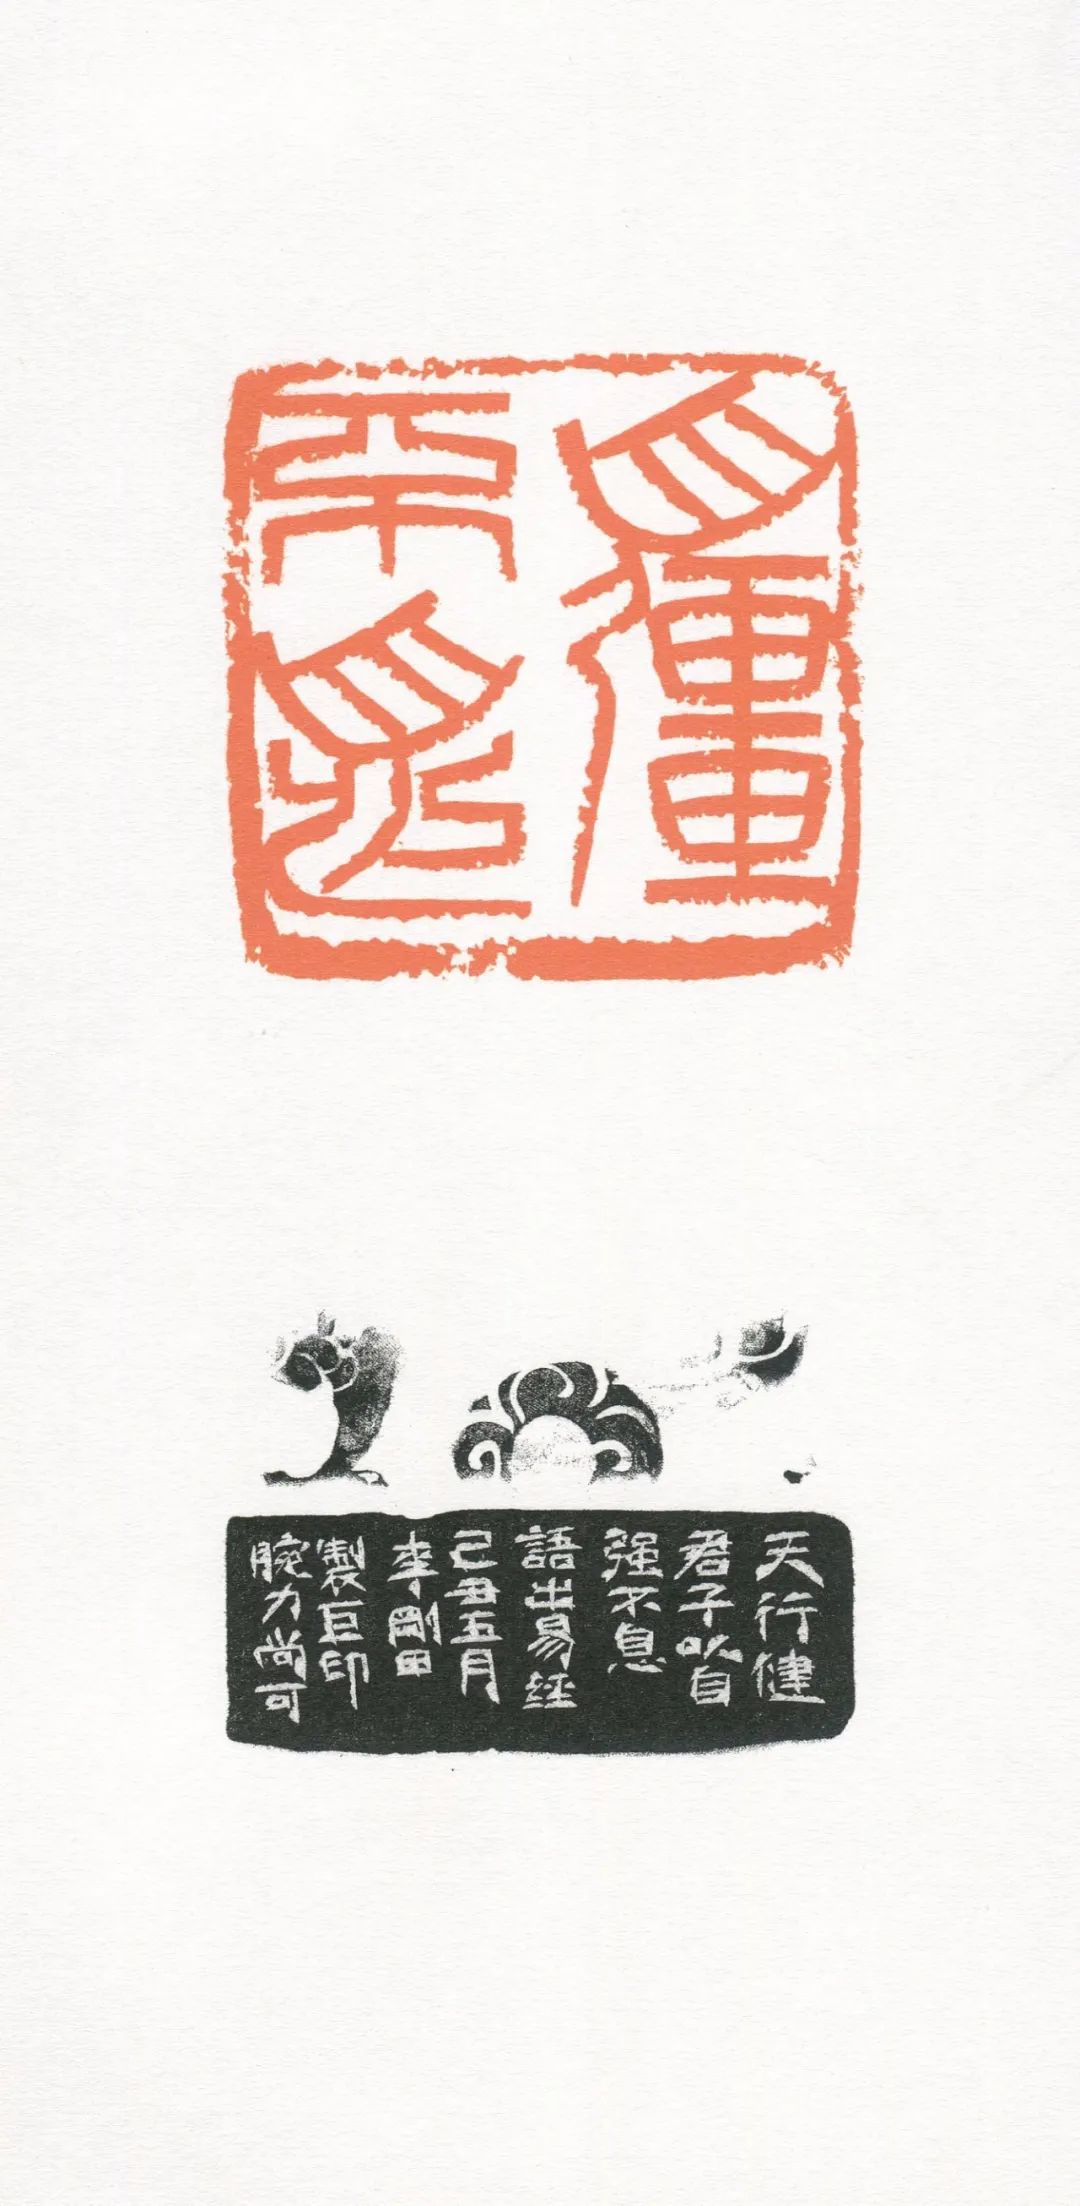 自強不息
天行健
君子以自
强不息
語出易經
己丑五月
李剛田
製巨印
腕力尚可